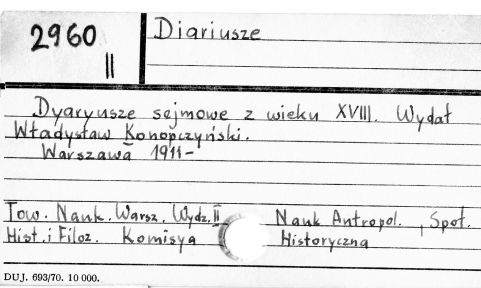 2960
II
Diariusze
Dyaryusze sejmowe z wieku XVIII. Wydał
Władysław Konopczyński.
Warszawa 1911-
Tow. Nauk. Warsz. Wydz. II Nauk Antropol., Społ.
Hist. i Filoz. Komisya Historyczna
DUJ. 693/70. 10 000.